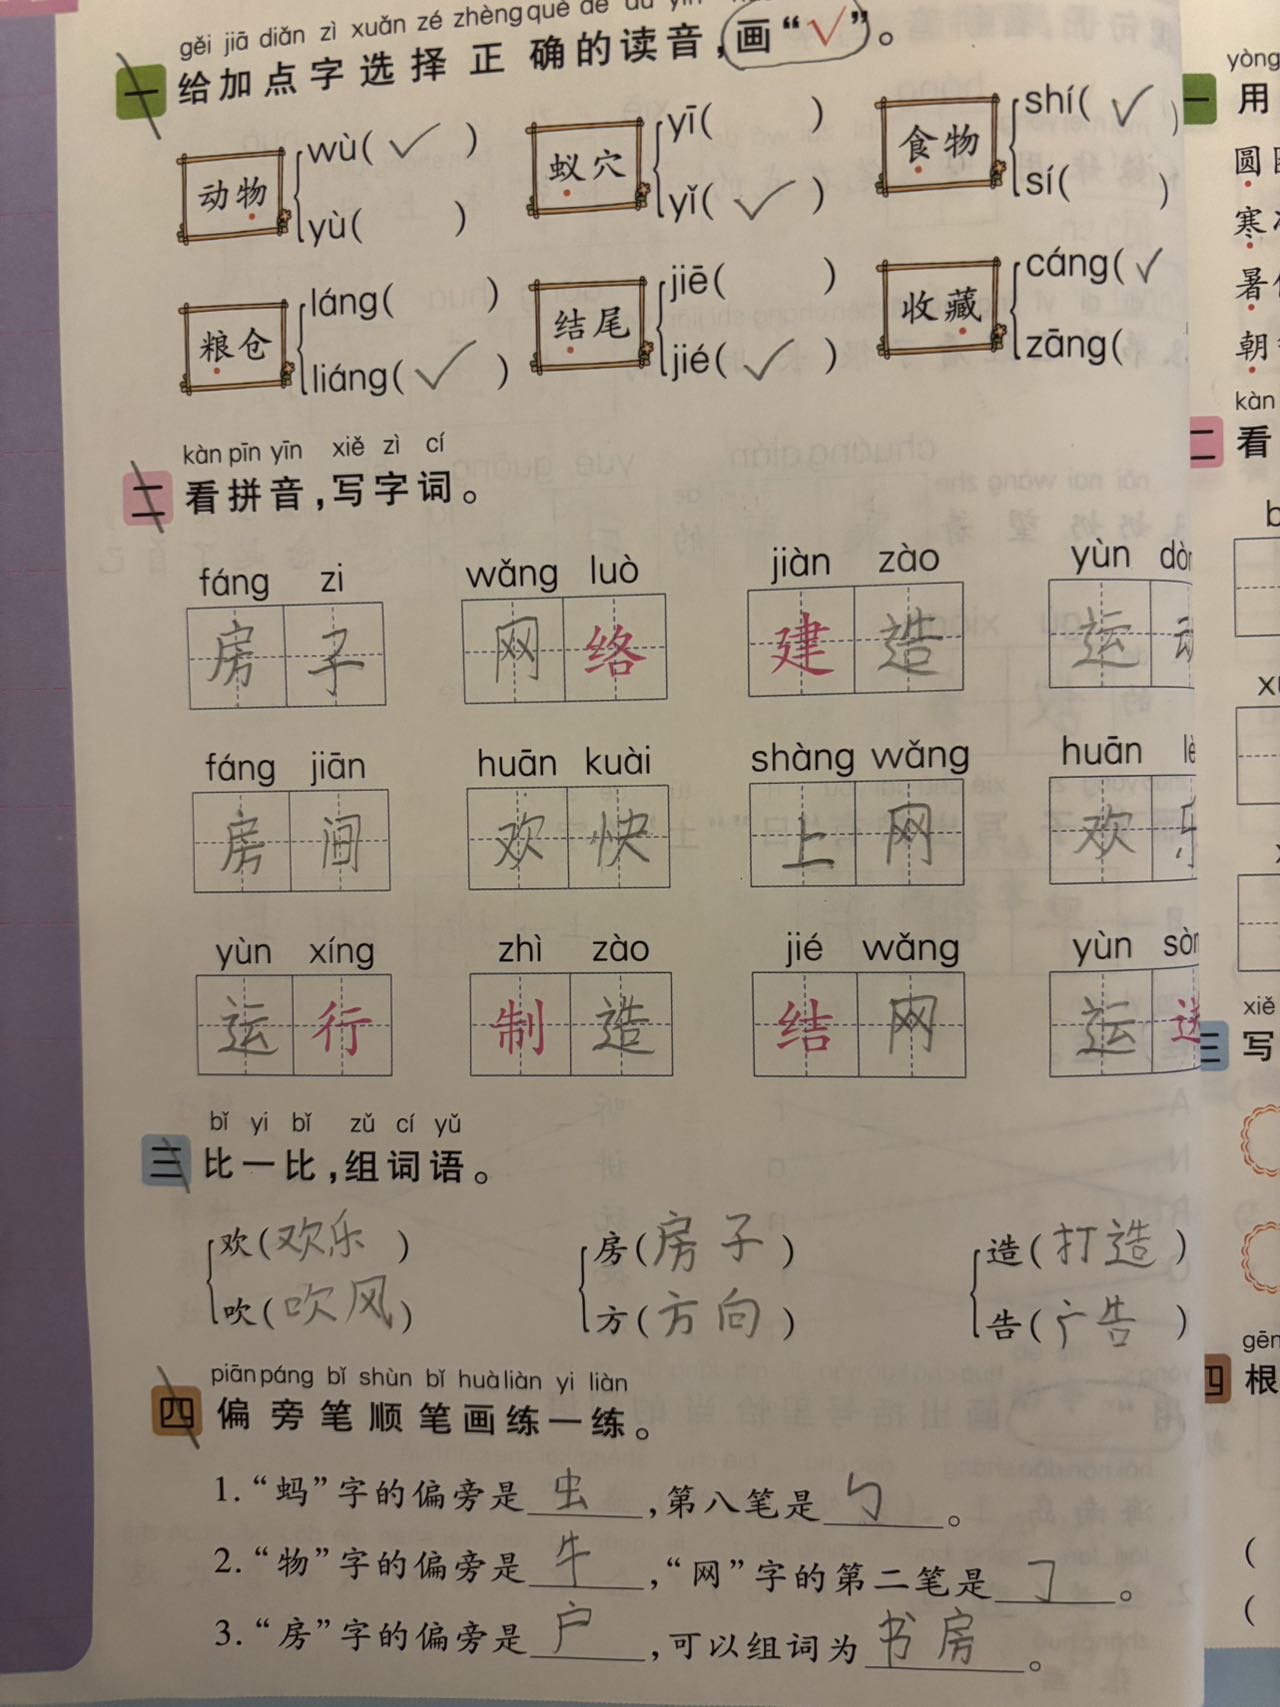 gěi jiā diǎn zì xuǎn zé zhèng què de
一 给加点字选择正确的读音,画“√”。
动物 wù( ✓ ) yù( )
蚁穴 yī( ) yǐ( ✓ )
食物 shí( ✓ ) sí( )
粮仓 láng( ) liáng( ✓ )
结尾 jiē( ) jié( ✓ )
收藏 cáng( ✓ zāng(
kàn pīn yīn xiě zì cí
二 看拼音,写字词。
fáng zi wǎng luò jiàn zào yùn
房子 网络 建造 运
fáng jiān huān kuài shàng wǎng huān
房间 欢快 上网 欢
yùn xíng zhì zào jié wǎng yùn
运行 制造 结网 运
bǐ yi bǐ zǔ cí yǔ
三 比一比,组词语。
欢(欢乐) 房(房子) 造(打造)
吹(吹风) 方(方向) 告(广告)
piān páng bǐ shùn bǐ huà liàn yi liàn
四 偏旁笔顺笔画练一练。
1.“蚂”字的偏旁是虫,第八笔是㇉。
2.“物”字的偏旁是牛,“网”字的第二笔是𠃌。
3.“房”字的偏旁是户,可以组词为书房。
yòng
一 用
圆
寒
暑
朝
kàn
二 看
xiě
三 写
四 根